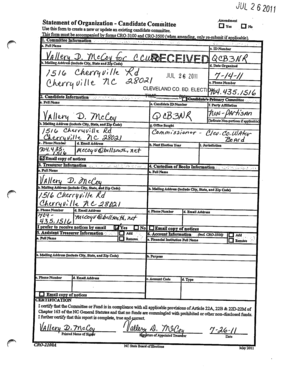 JUL 26 2011
Statement of Organization - Candidate Committee
Amendment
Yes No
Use this form to create a new or update an existing candidate committee.
This form must be accompanied by forms CRO-3100 and CRO-3500 (when amending, only re-submit if applicable).
1. Committee Information
a. Full Name
d. ID Number
Vallery D. McCoy for CCW RECEIVED QCB3NR
b. Mailing Address (include City, State and Zip Code)
e. Date Organized
1516 Cherryville Rd
JUL 26 2011
7-14-11
Cherryville NC 28021
c. Phone Number
CLEVELAND CO BD ELECTIONS
704.435.1516
2. Candidate Information
a. Full Name
e. Candidate ID Number
f. Party Affiliation
Vallery D. McCoy
QCB3NR
Non-partisan
b. Mailing Address (include City, State, and Zip Code)
g. Office Sought
1516 Cherryville Rd
Commissioner - Clev. Co. Water
Cherryville NC 28021
Board
c. Phone Number
d. Email Address
h. Next Election Year
i. Jurisdiction
704.435.
mccoyv@bellsouth.net
1516
Email copy of notices
3. Treasurer Information
4. Custodian of Books Information
a. Full Name
a. Full Name
Vallery D. McCoy
b. Mailing Address (include City, State, and Zip Code)
b. Mailing Address (include City, State, and Zip Code)
1516 Cherryville Rd
Cherryville NC 28021
c. Phone Number
d. Email Address
c. Phone Number
d. Email Address
704-
mccoyv@bellsouth.net
435.1516
I prefer to receive notices by email
Yes No
Email copy of notices
5. Assistant Treasurer Information
Add
6. Account Information
(Incl. CRO-3500)
Add
a. Full Name
Remove
a. Financial Institution Full Name
Remove
b. Mailing Address (include City, State, and Zip Code)
b. Purpose
c. Phone Number
d. Email Address
c. Account Code
d. Type
Email copy of notices
CERTIFICATION
I certify that the Committee or Fund is in compliance with all applicable provisions of Article 22A, 22B & 22D-22M of
Chapter 163 of the NC General Statutes and that no funds are commingled with prohibited or other non-disclosed funds.
I further certify that this report is complete, true and correct.
Vallery D. McCoy
Vallery D. McCoy
7-26-11
Printed Name of Signer
Signature of Appointed Treasurer
Date
CRO-2100A
NC State Board of Elections
May 2011